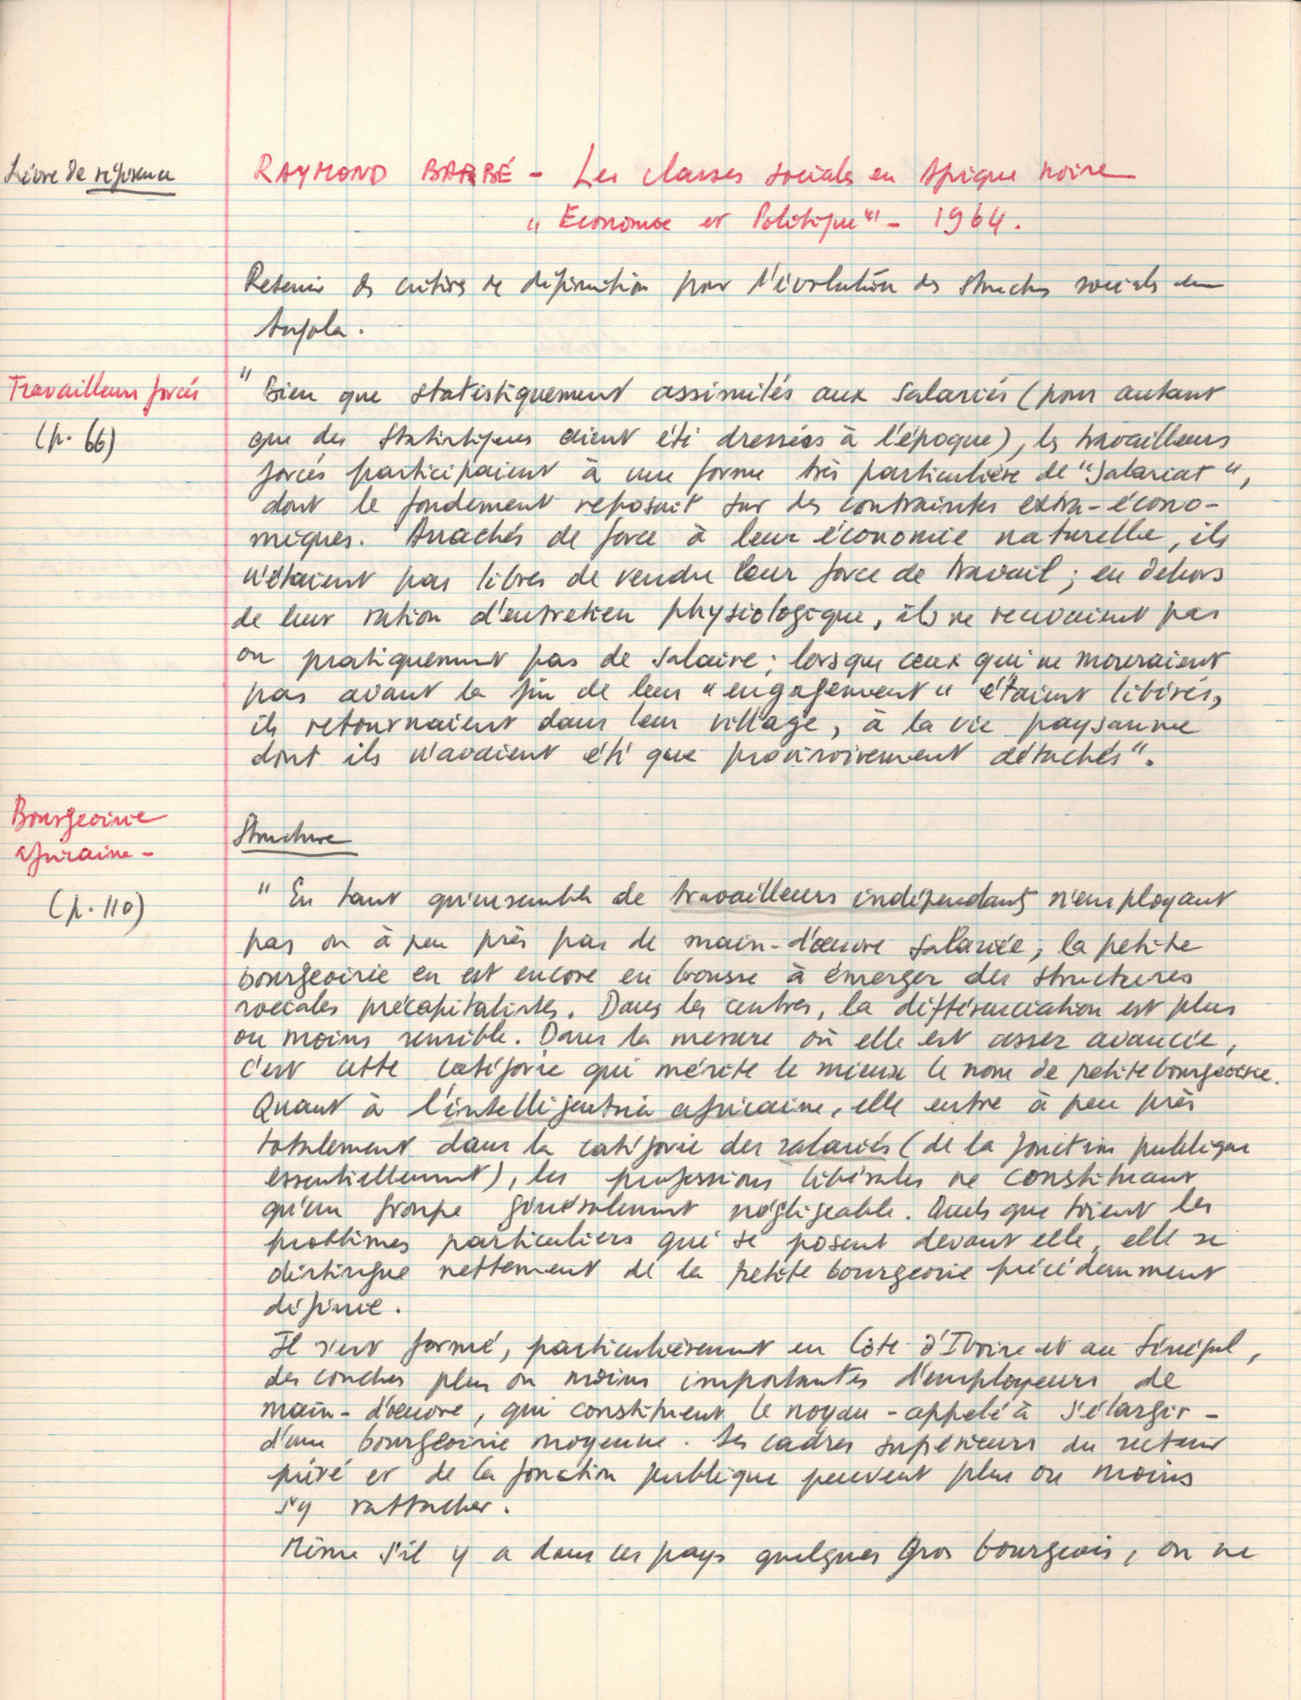 Livre de référence
RAYMOND BARBÉ - Les classes sociales en Afrique noire
"Economie et Politique" - 1964.
Retenir des critères de définition pour l'évolution des structures sociales en
Angola.
Travailleurs forcés
(p. 66)
"Bien que statistiquement assimilés aux salariés (pour autant
que des statistiques aient été dressées à l'époque), les travailleurs
forcés participaient à une forme très particulière de "salariat",
dont le fondement reposait sur des contraintes extra-écono-
miques. Arrachés de force à leur économie naturelle, ils
n'étaient pas libres de vendre leur force de travail; en dehors
de leur ration d'entretien physiologique, ils ne recevaient pas
ou pratiquement pas de salaire; lorsque ceux qui ne mouraient
pas avant la fin de leur "engagement" étaient libérés,
ils retournaient dans leur village, à la vie paysanne
dont ils n'avaient été que provisoirement détachés".
Bourgeoisie
africaine -
(p. 110)
Structure
"En tant qu'ensemble de travailleurs indépendants n'employant
pas ou à peu près pas de main-d'œuvre salariée, la petite
bourgeoisie en est encore en brousse à émerger des structures
sociales précapitalistes. Dans les centres, la différenciation est plus
ou moins sensible. Dans la mesure où elle est assez avancée,
c'est cette catégorie qui mérite le mieux le nom de petite bourgeoisie.
Quant à l'intelligentsia africaine, elle entre à peu près
totalement dans la catégorie des salariés (de la fonction publique
essentiellement), les professions libérales ne constituant
qu'un groupe généralement négligeable. Quels que soient les
problèmes particuliers qui se posent devant elle, elle se
distingue nettement de la petite bourgeoisie précédemment
définie.
Il s'est formé, particulièrement en Côte d'Ivoire et au Sénégal,
des couches plus ou moins importantes d'employeurs de
main-d'œuvre, qui constituent le noyau - appelé à s'élargir -
d'une bourgeoisie moyenne. Les cadres supérieurs du secteur
privé et de la fonction publique peuvent plus ou moins
s'y rattacher.
Même s'il y a dans ces pays quelques gros bourgeois, on ne